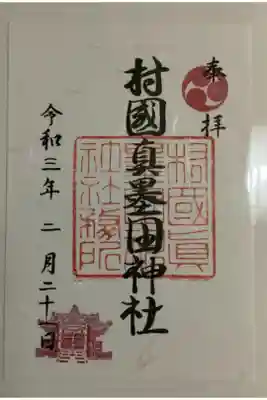 奉拝
村國真墨田神社
村國真
墨田神
社社務所
令和三年二月二十一日